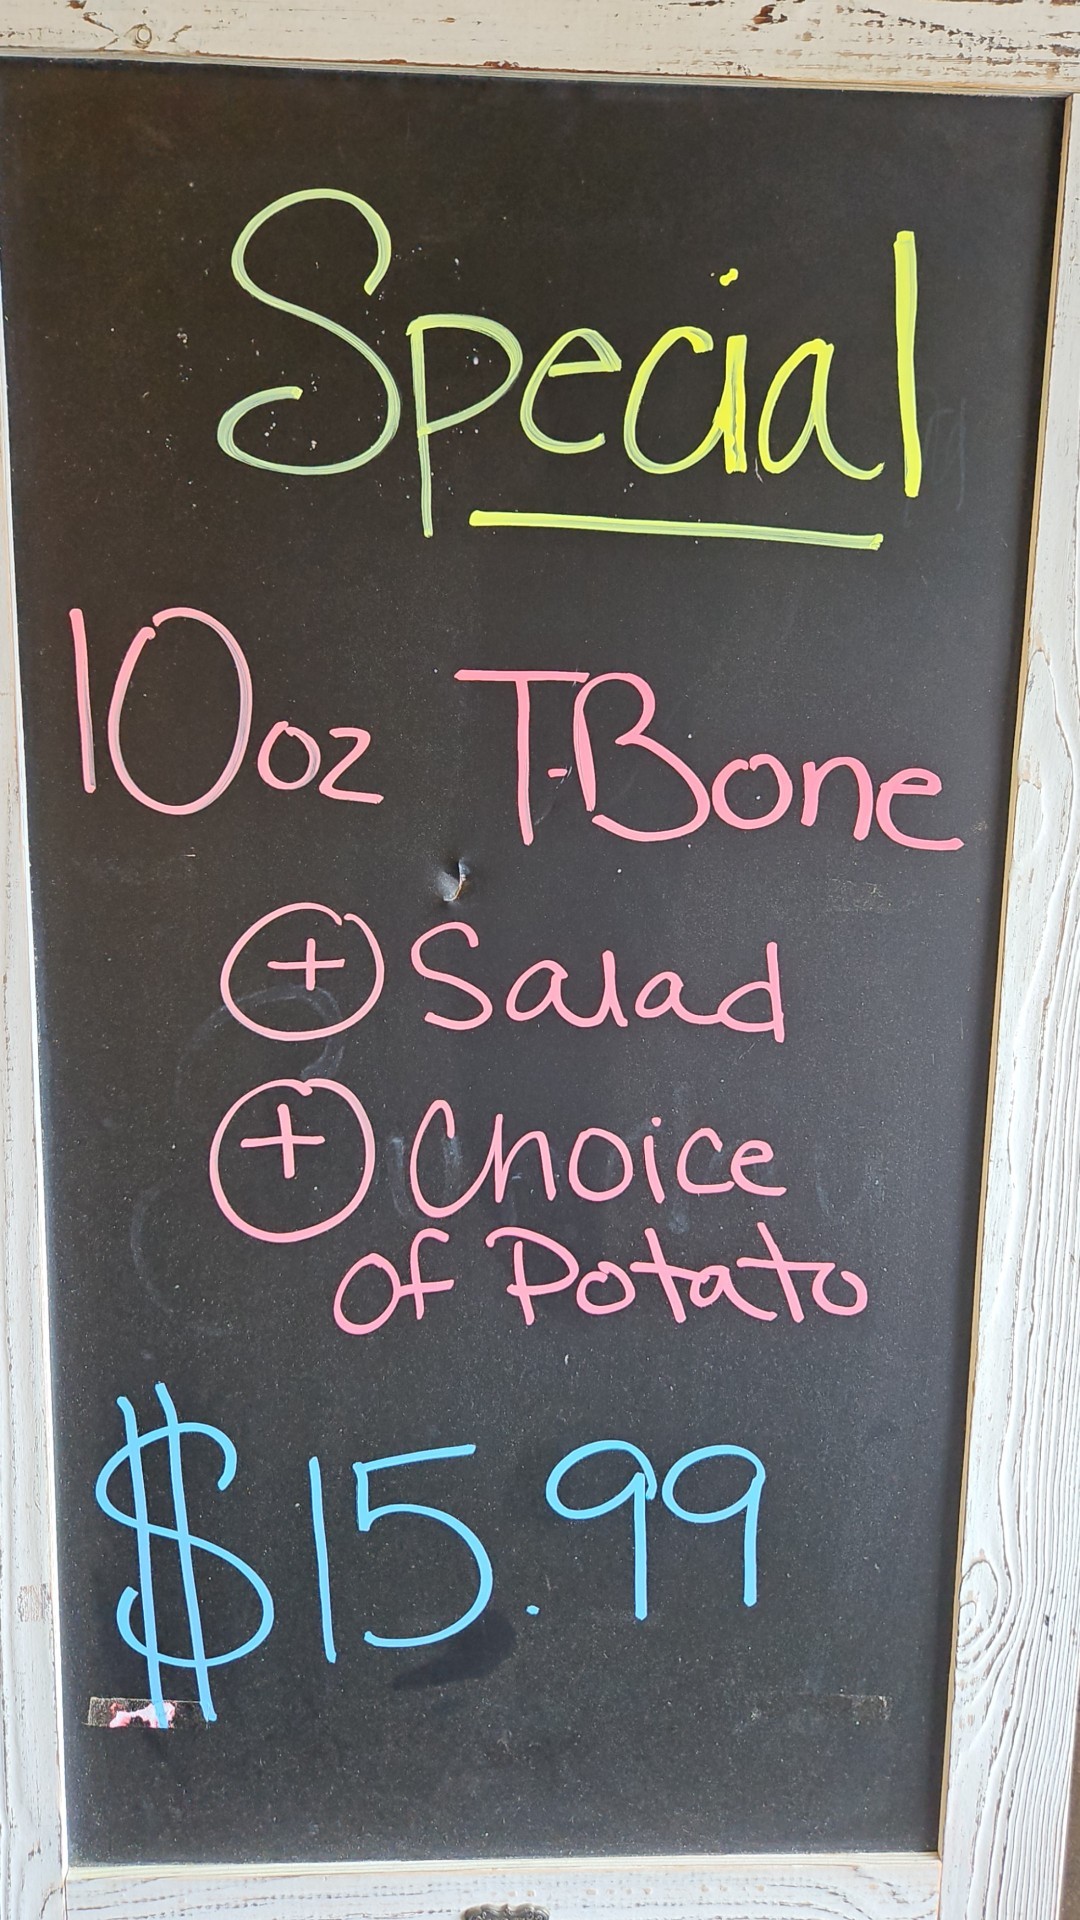 Special
10oz T-Bone
+ Salad
+ Choice
of Potato
$15.99